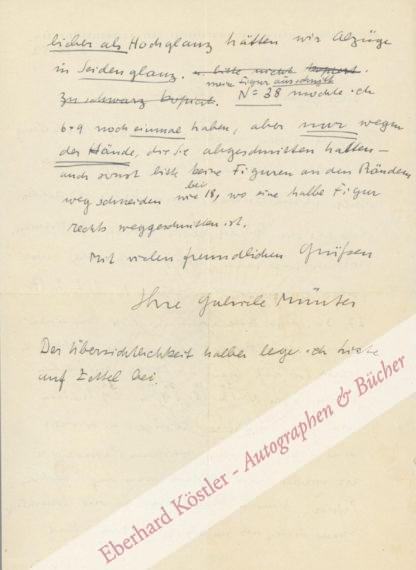 licher als Hochglanz hätten wir Abzüge
in Seidenglanz. u. bitte nicht kopiert.
meine Figur ausschnitt
zu schwarz kopiert. N= 38 möchte ich
6+9 noch einmal haben, aber nur wegen
der Hände, die Sie abgeschnitten hatten –
auch sonst bitte keine Figuren an den Rändern
wegschneiden wie bei 18, wo eine halbe Figur
rechts weggeschnitten ist.
Mit vielen freundlichen Grüßen
Ihre Gabriele Münter
Der Übersichtlichkeit halber lege ich Liste
auf Zettel bei.
Eberhard Köstler - Autographen & Bücher